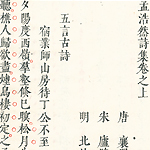 孟浩然詩集卷之上
唐 襄
宋 廬
明 北
五言古詩
宿業師山房待丁公不至
夕陽度西嶺羣壑倏已暝松月
聽樵人歸欲盡煙鳥棲初定之